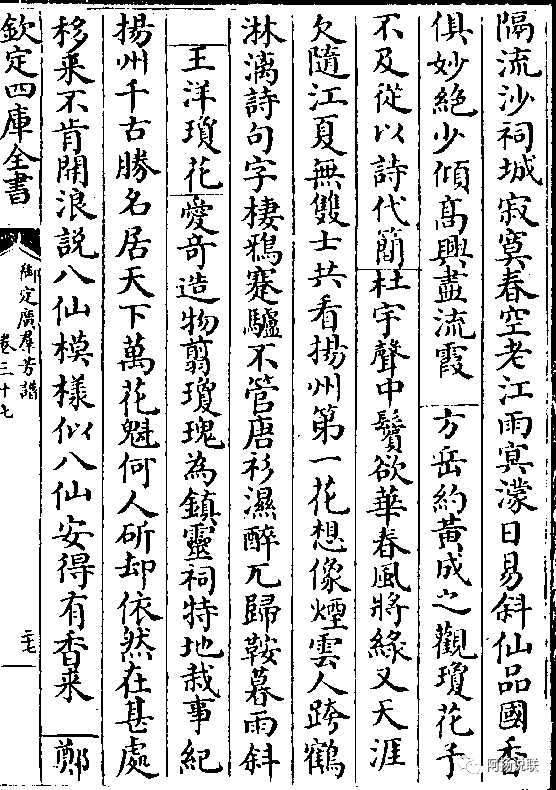 隔流沙祠城寂寞春空老江雨冥濛日易斜仙品國香
俱妙絶少傾髙興盡流霞　方岳約黃成之觀瓊花予
不及從以詩代簡杜宇聲中鬢欲華春風將緣又天涯
欠隨江夏無雙士共看揚州第一花想像煙雲人跨鶴
淋漓詩句字棲鴉蹇驢不管唐衫濕醉兀歸鞍暮雨斜
王洋瓊花愛奇造物翦瓊瑰為鎮靈祠特地栽事紀
揚州千古勝名居天下萬花魁何人斫却依然在甚處
移来不肯開浪説八仙模樣似八仙安得有香来　鄭
欽定四庫全書
御定廣羣芳譜
卷三十七
二十七
阿扬说联